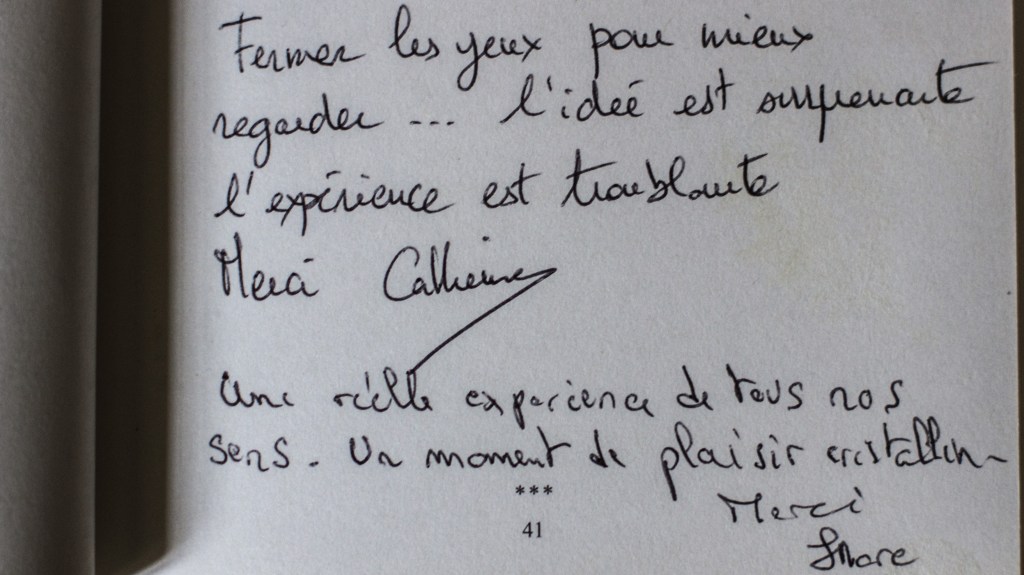 Fermer les yeux pour mieux
regarder ... l'ideé est surprenante
l'expérience est troublante
Merci Catherine
Une réelle experience de tous nos
sens. Un moment de plaisir cristallin
***
Merci
41